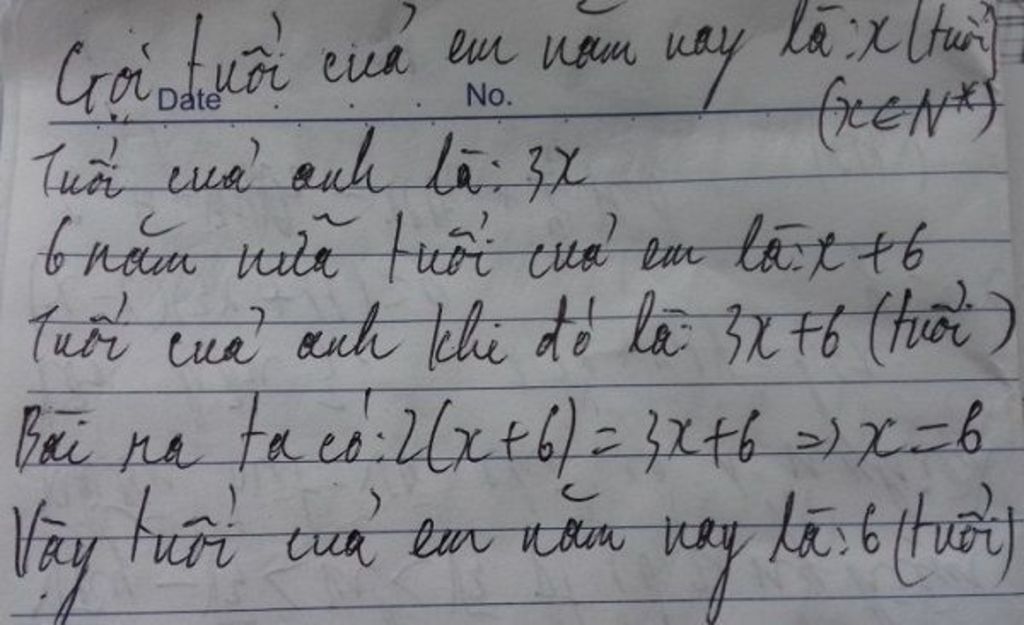 Gọi tuổi của em năm nay là: x (tuổi)
Date No.
(x ∈ N*)
Tuổi của anh là: 3x
6 năm nữa tuổi của em là: x + 6
Tuổi của anh khi đó là: 3x + 6 (tuổi)
Bài ra ta có: 2(x + 6) = 3x + 6 => x = 6
Vậy tuổi của em năm nay là: 6 (tuổi)